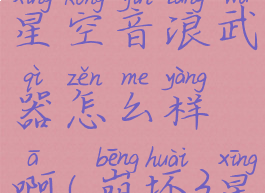 xīng kōng yīn làng wǔ
星空音浪武
qì zěn me yàng
器怎么样
ā bēng huài xīng
啊(崩坏3星